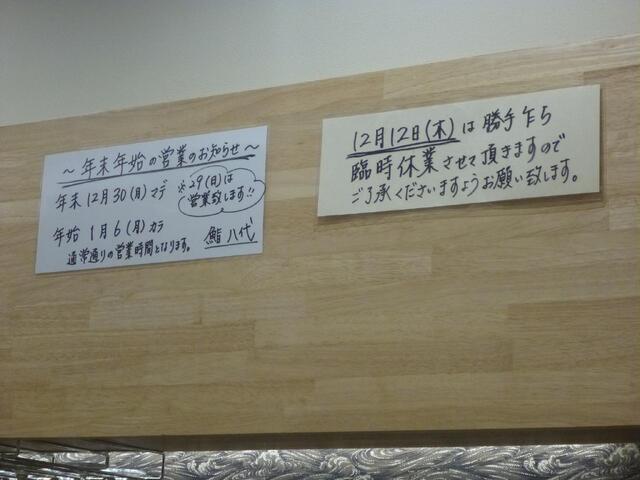 ～年末年始の営業のお知らせ～
年末12月30(月)マデ
※29(日)は
営業致します!!
年始 1月6(月)カラ
通常通りの営業時間となります。
鮨 八代
12月12日(木)は勝手乍ら
臨時休業させて頂きますので
ご了承くださいますようお願い致します。